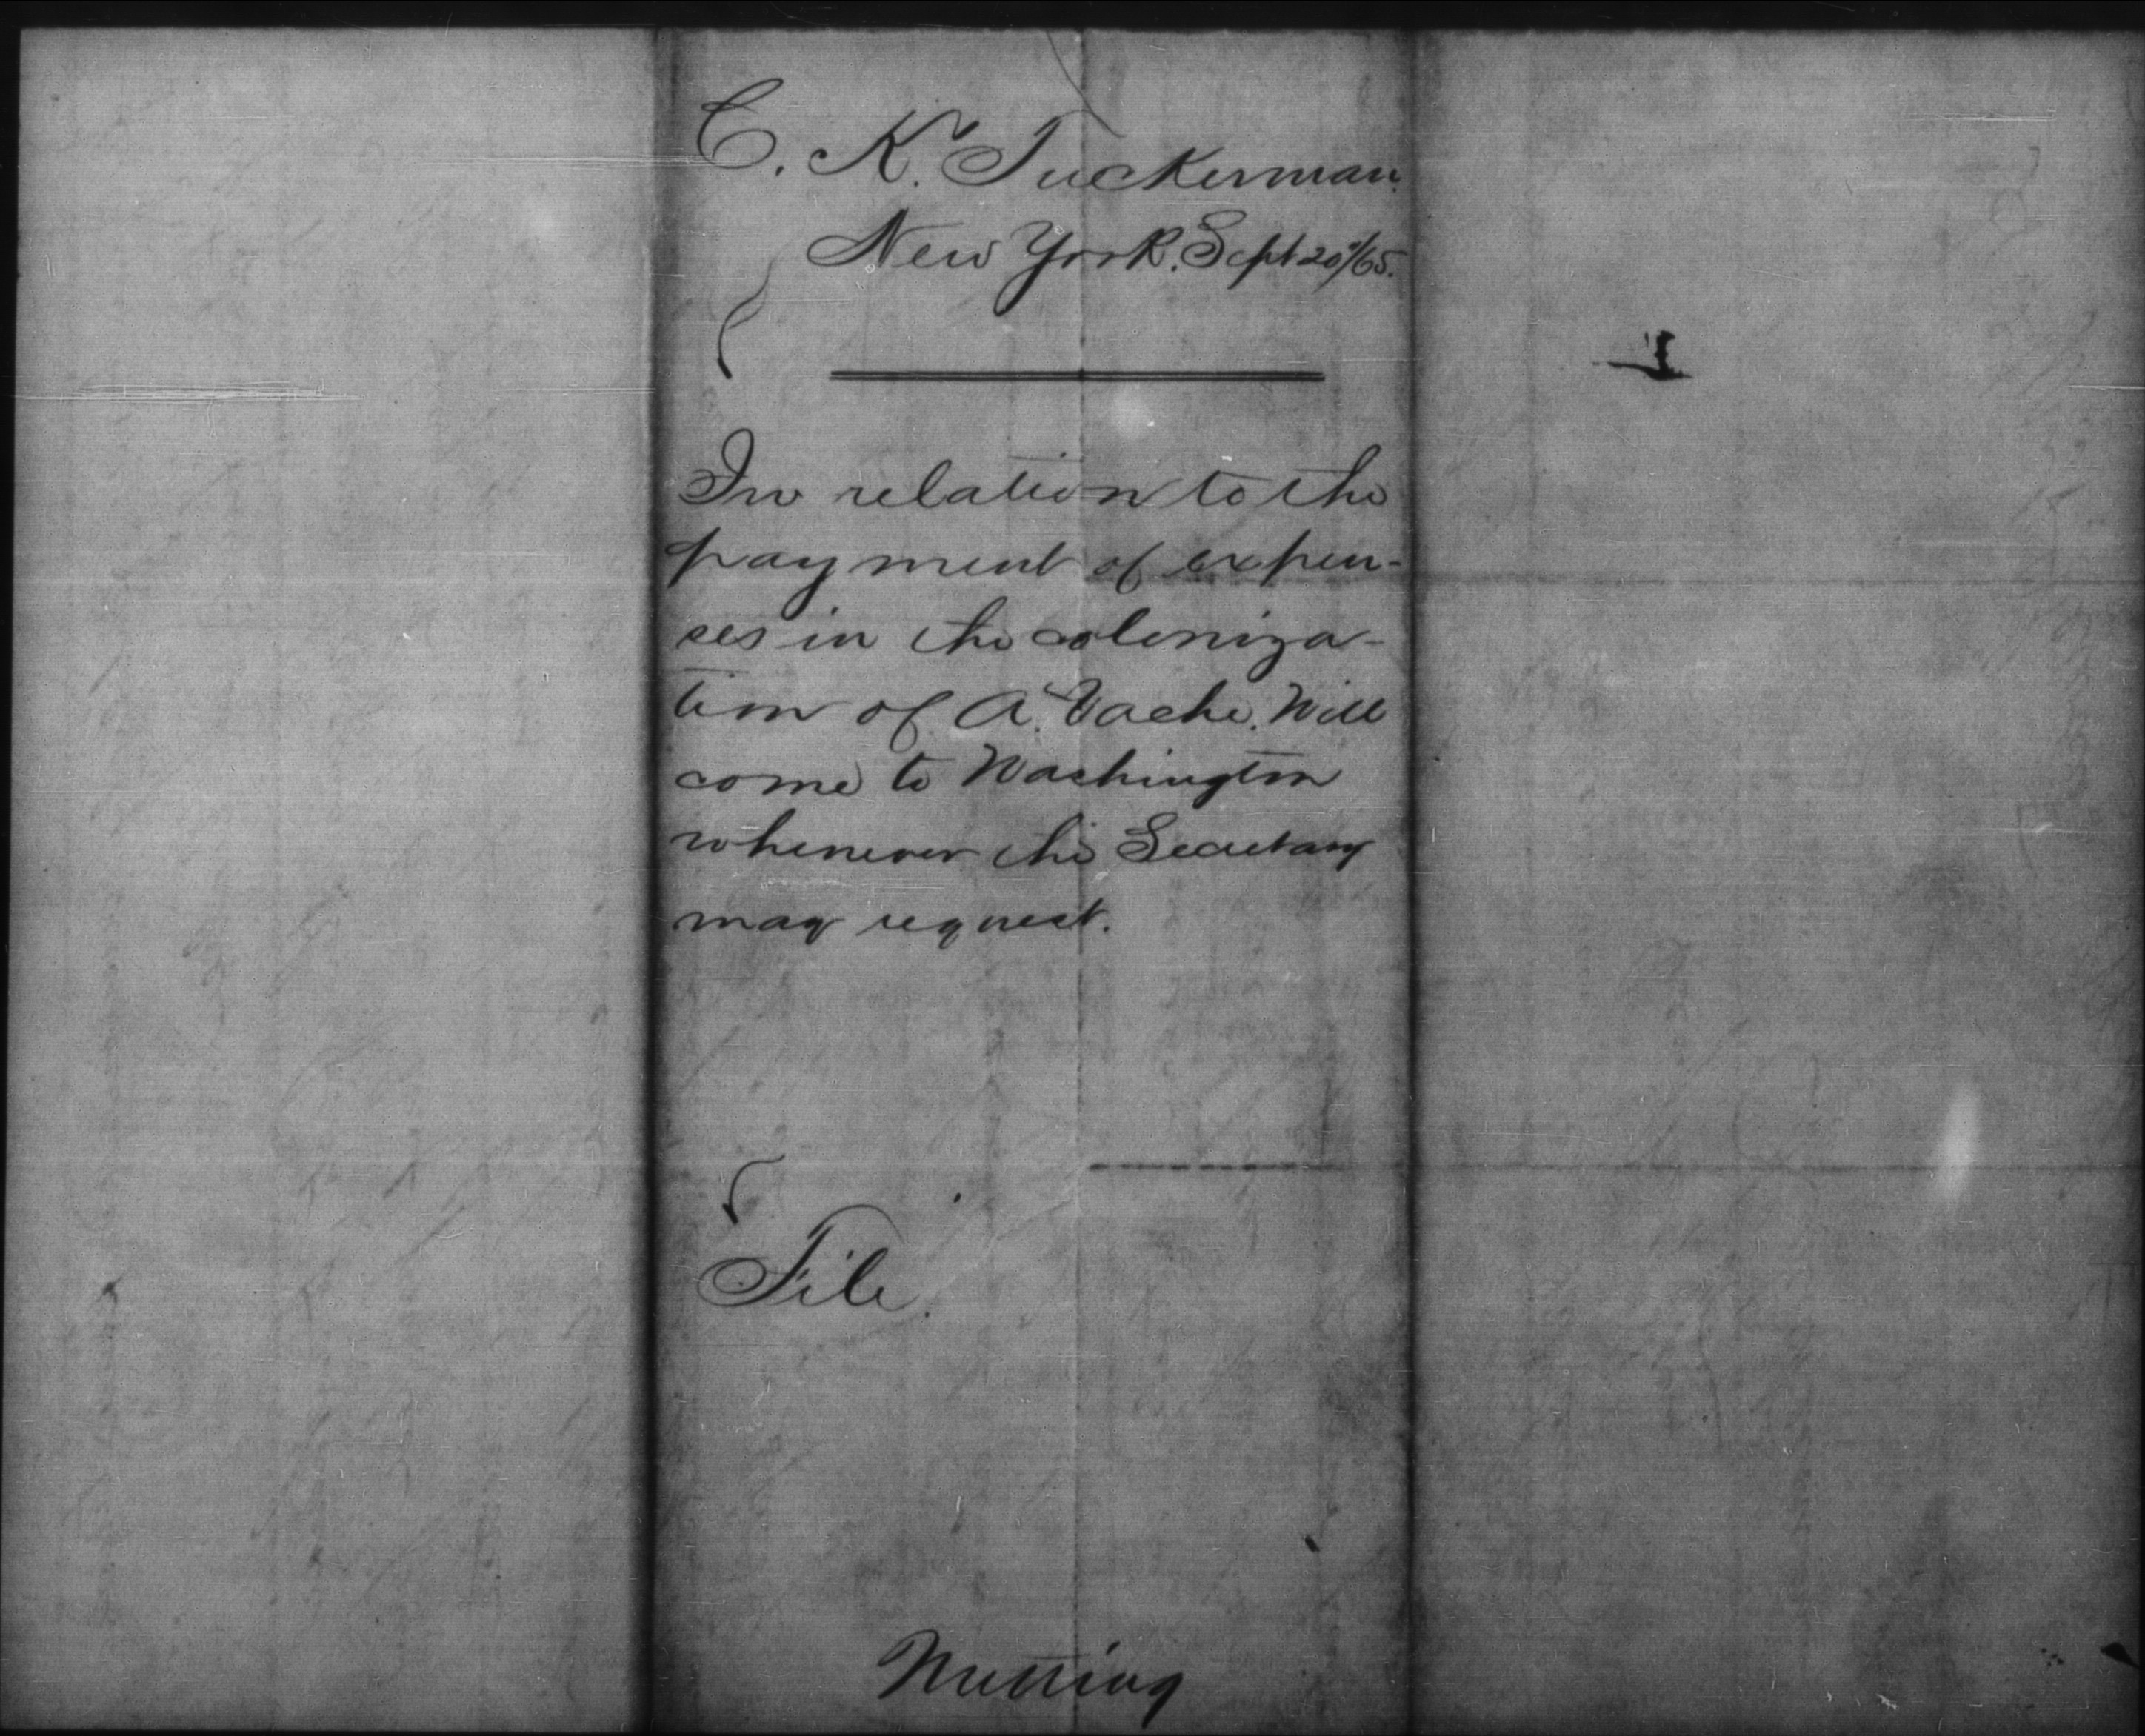 C. K. Tuckerman.
New York. Sept 20/65.
In relation to the
payment of expen-
ses in the coloniza-
tion of A. Vache. Will
come to Washington
whenever the Secretary
may request.
File.
Nutting